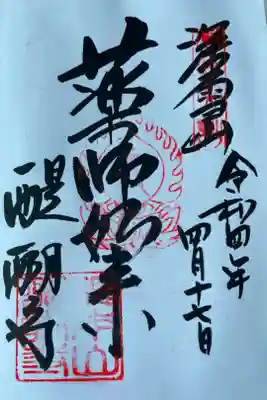 深雪山
令和四年
四月十七日
薬師如来
醍醐寺